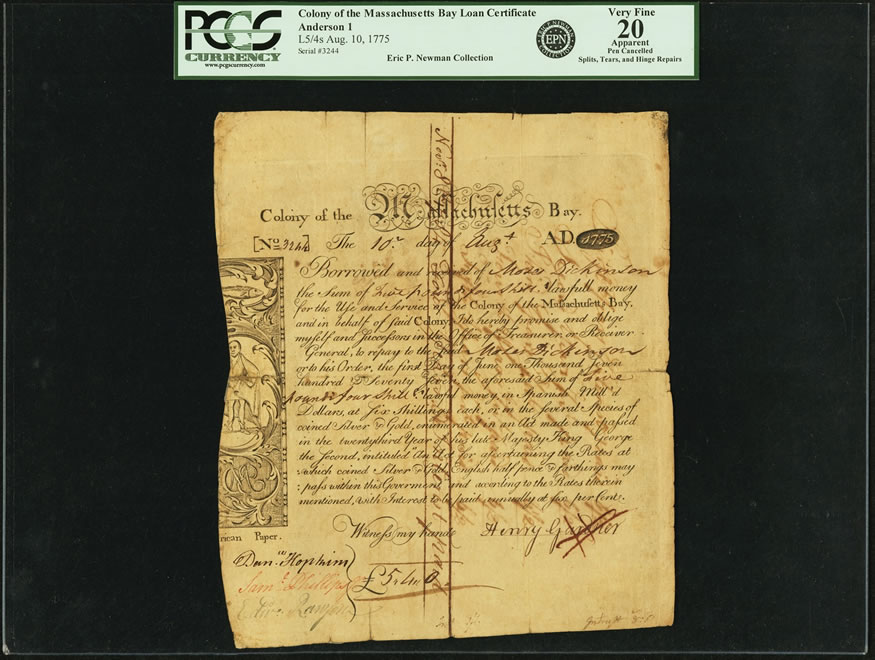 PCGS
CURRENCY
www.pcgscurrency.com
Colony of the Massachusetts Bay Loan Certificate
Anderson 1
L5/4s Aug. 10, 1775
Serial #3244
Eric P. Newman Collection
ERIC P. NEWMAN
EPN
Very Fine
20
Apparent
Pen Cancelled
Splits, Tears, and Hinge Repairs
Colony of the Massachusetts Bay.
[No. 3244] The 10th day of Augt A.D. 1775
Borrowed and received of Moses Dickinson
the Sum of Five pounds four shills lawfull money
for the Use and Service of the Colony of the Massachusetts Bay,
and in behalf of said Colony, I do hereby promise and oblige
myself and Successors in the Office of Treasurer, or Receiver
General, to repay to the said Moses Dickinson
or to his Order, the first Day of June one Thousand Seven
hundred & Seventy Seven, the aforesaid Sum of Five
pounds four Shills lawful money, in Spanish Mill'd
Dollars, at six Shillings each, or in the several Species of
coined Silver & Gold, enumerated in an Act made and passed
in the twenty third Year of his late Majesty King George
the Second, intituled An Act for ascertaining the Rates at
which coined Silver & Gold, English half pence & farthings may
pass within this Government, and according to the Rates therein
mentioned, with Interest to be paid annually at six per Cent.
rican Paper.
Witness my hand Henry Gardner
Danl Hopkins
Saml Phillips
£5.4.0